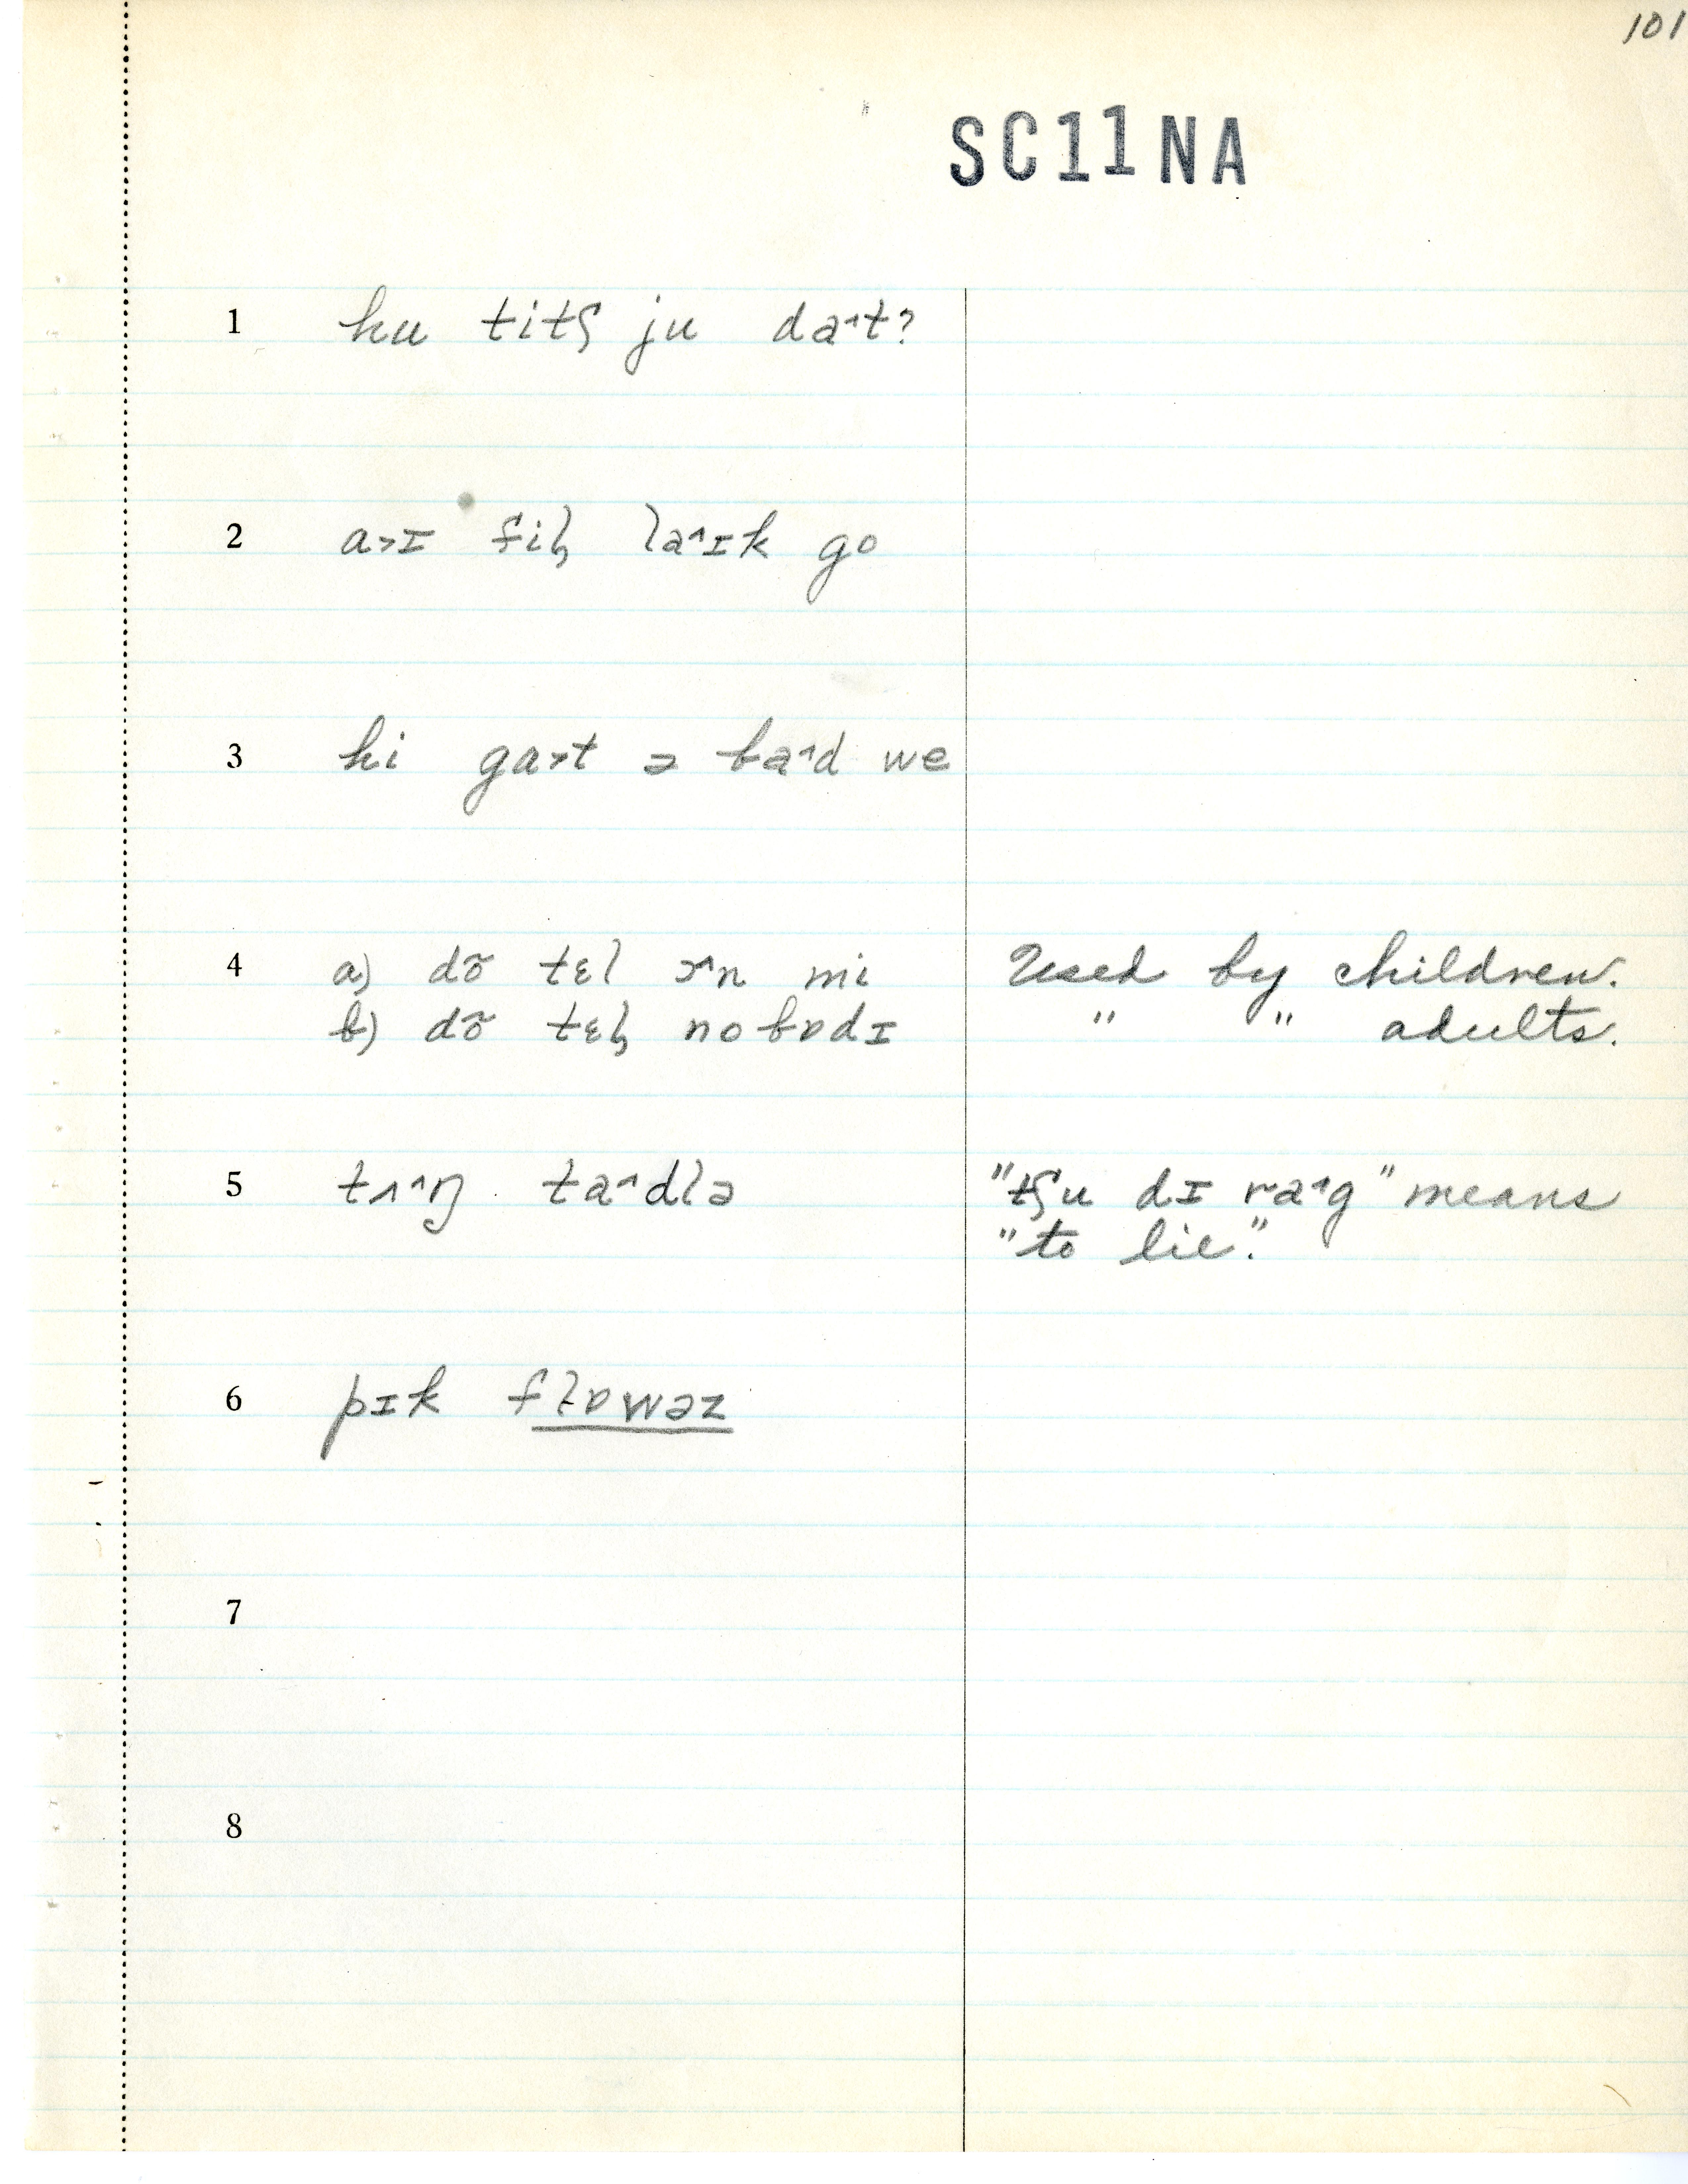 101
SC11NA
1 hu titʃ ju da˄t?
2 a˃ɪ fiɫ la˄ɪk go
3 hi ga˃t ə ba˄d we
4 a) dõ tɛl ɔ˄n mi Used by children.
b) dõ tɛɫ nobɒdɪ " " adults.
5 tʌ˄ŋ ta˄dlə "tʃu dɪ ra˄g" means
"to lie."
6 pɪk flɒwəz
7
8